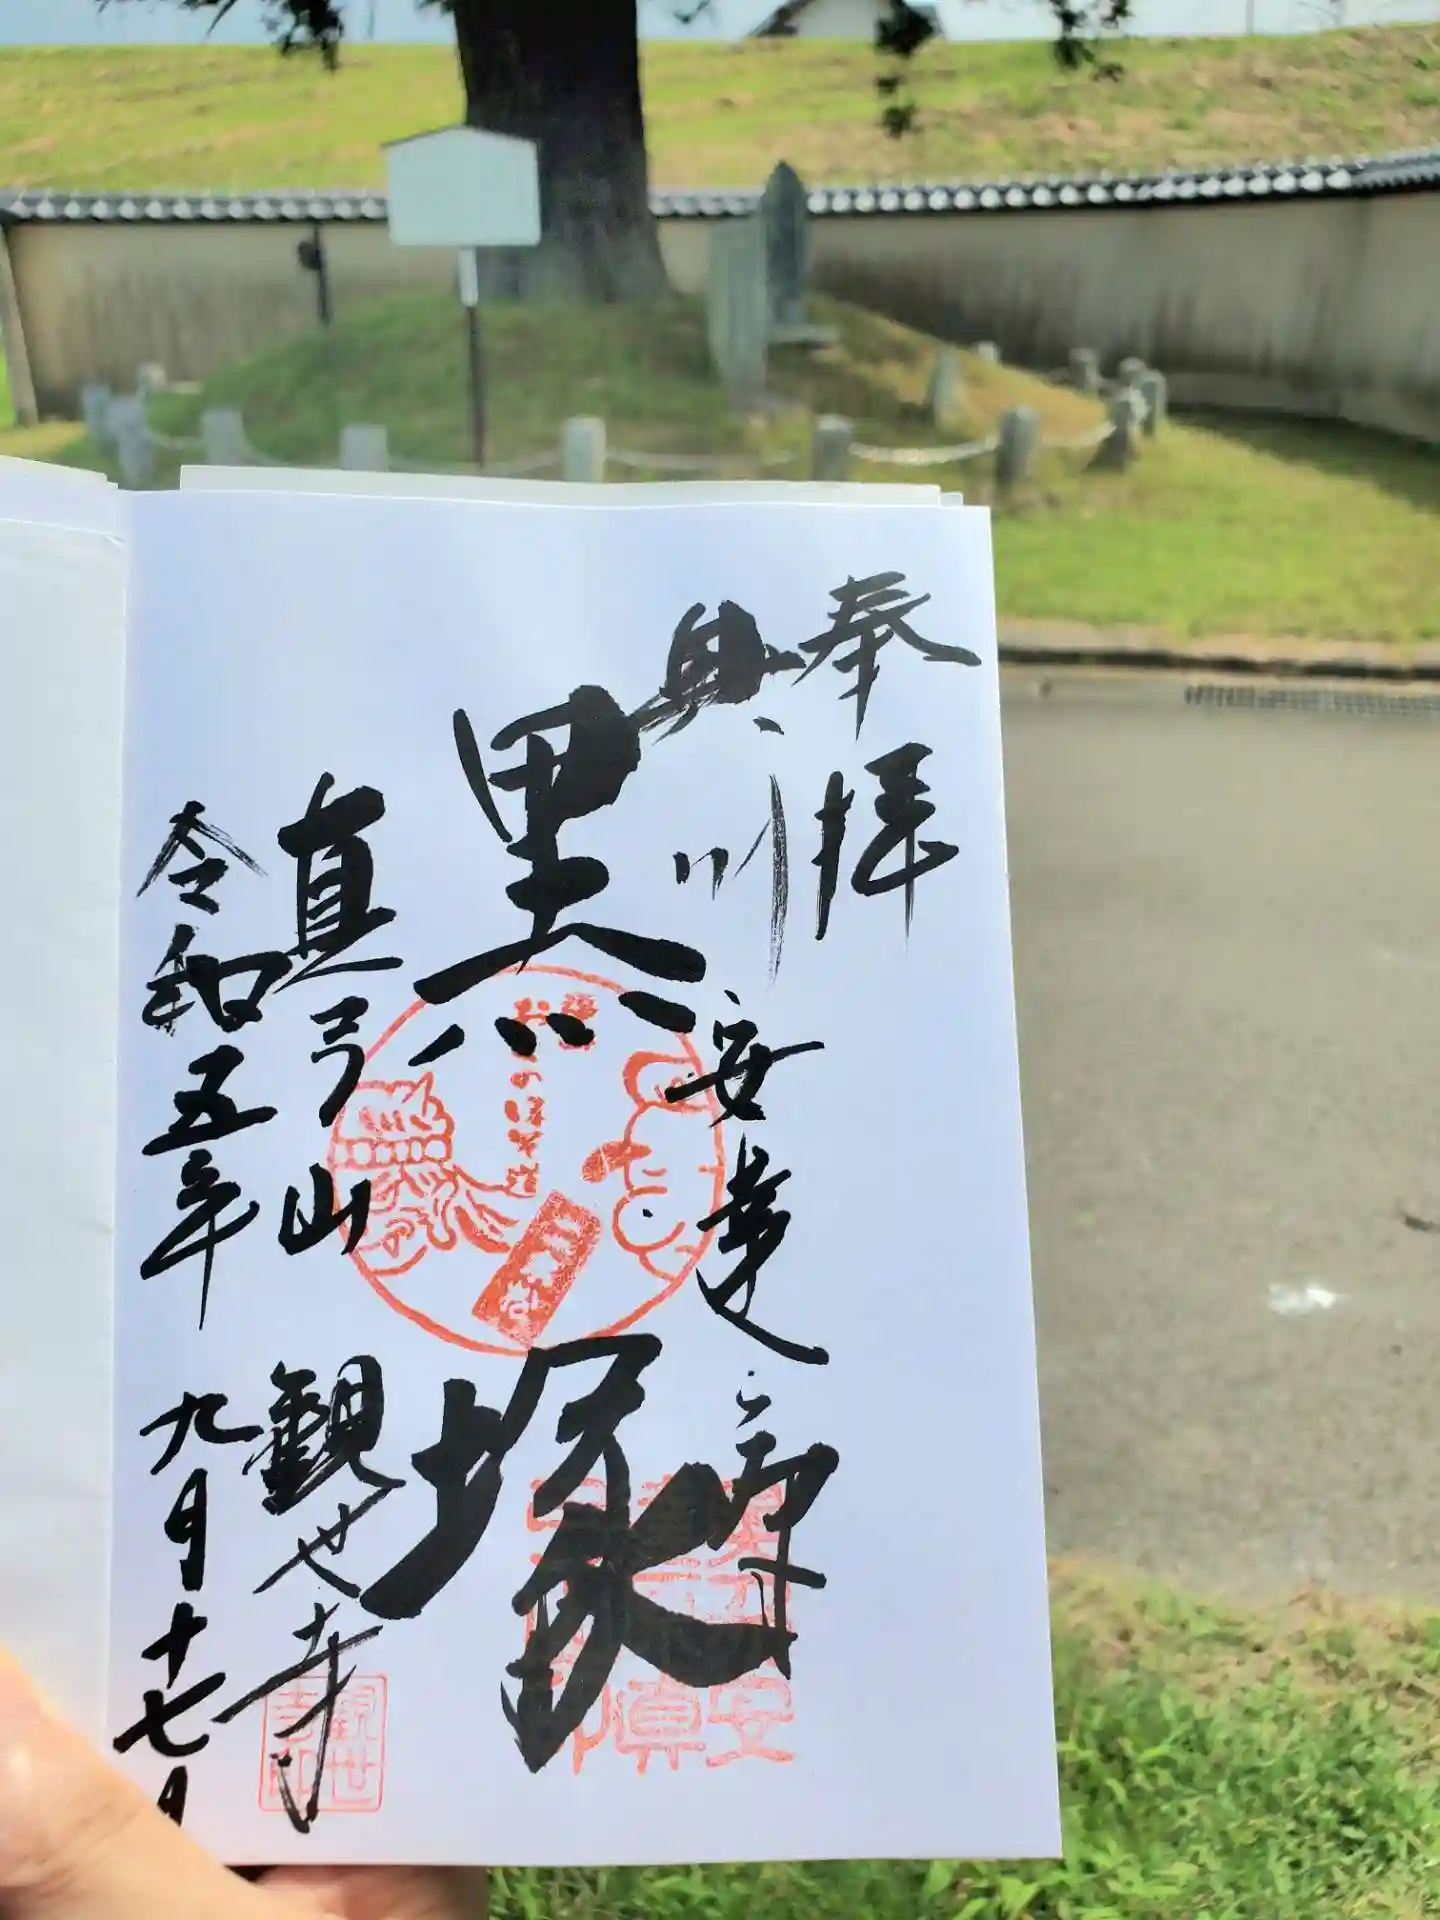 奉拝
奥州安達ヶ原
黒塚
真弓山 観世寺
令和五年 九月十七日
二本松
観世寺印